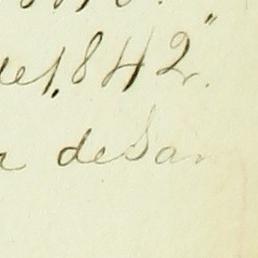 de 1,842"
a de San